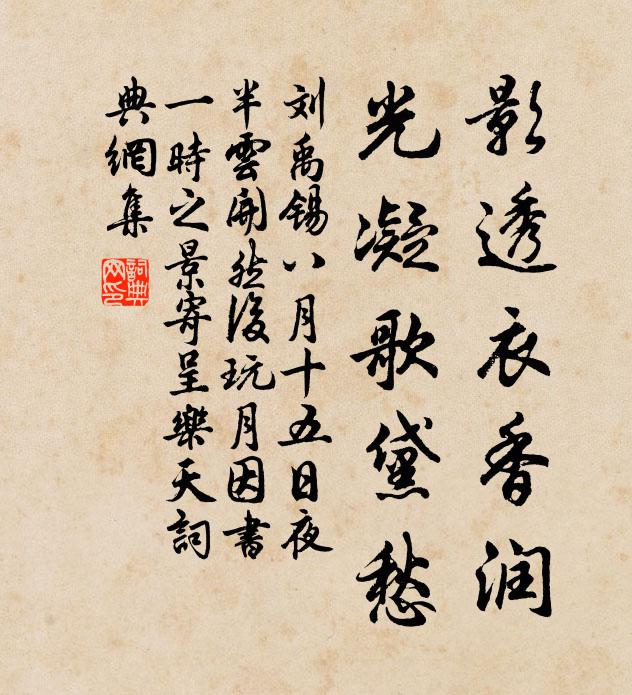 影透衣香润
光凝歌黛愁
刘禹锡八月十五日夜
半雲開然後玩月因書
一時之景寄呈樂天詞
典網集
詞典
网印